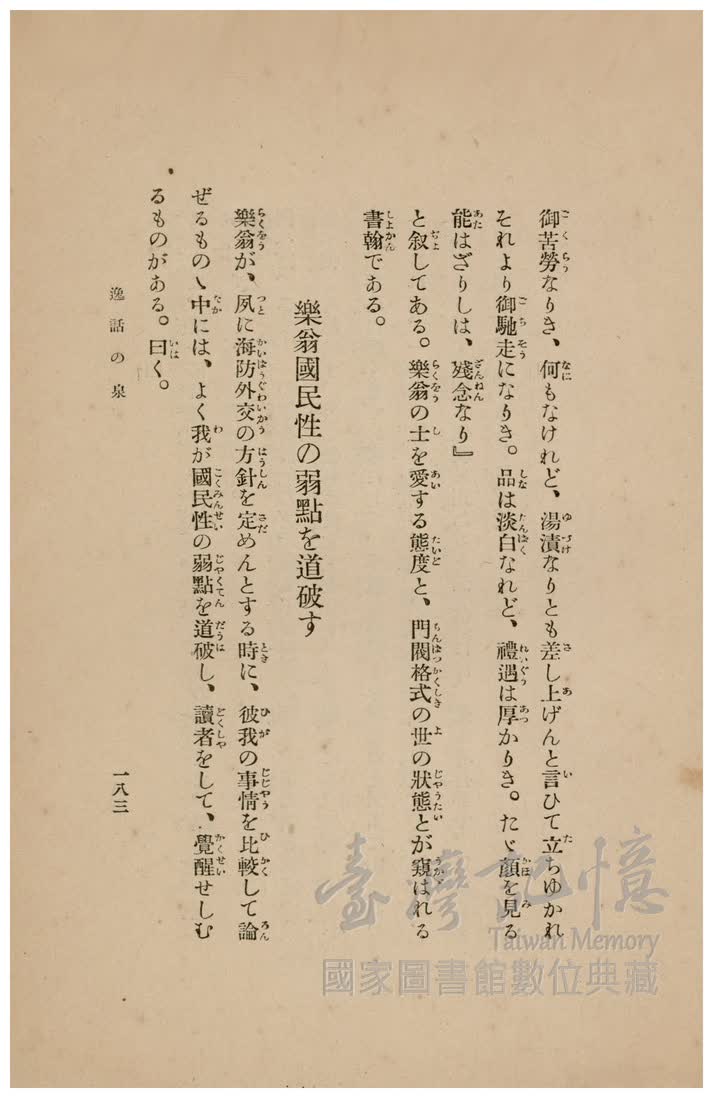 御苦勞なりき、何もなけれど、湯漬なりとも差し上げんと言ひて立ちゆかれ
それより御馳走になりき。品は淡白なれど、禮遇は厚かりき。たゞ顏を見る
能はざりしは、殘念なり』
と叙してある。樂翁の士を愛する態度と、門閥格式の世の狀態とが窺はれる
書翰である。
樂翁國民性の弱點を道破す
樂翁が、夙に海防外交の方針を定めんとする時に、彼我の事情を比較して論
ぜるものゝ中には、よく我が國民性の弱點を道破し、讀者をして、覺醒せしむ
るものがある。曰く。
逸話の泉
一八三
臺灣記憶
Taiwan Memory
國家圖書館數位典藏